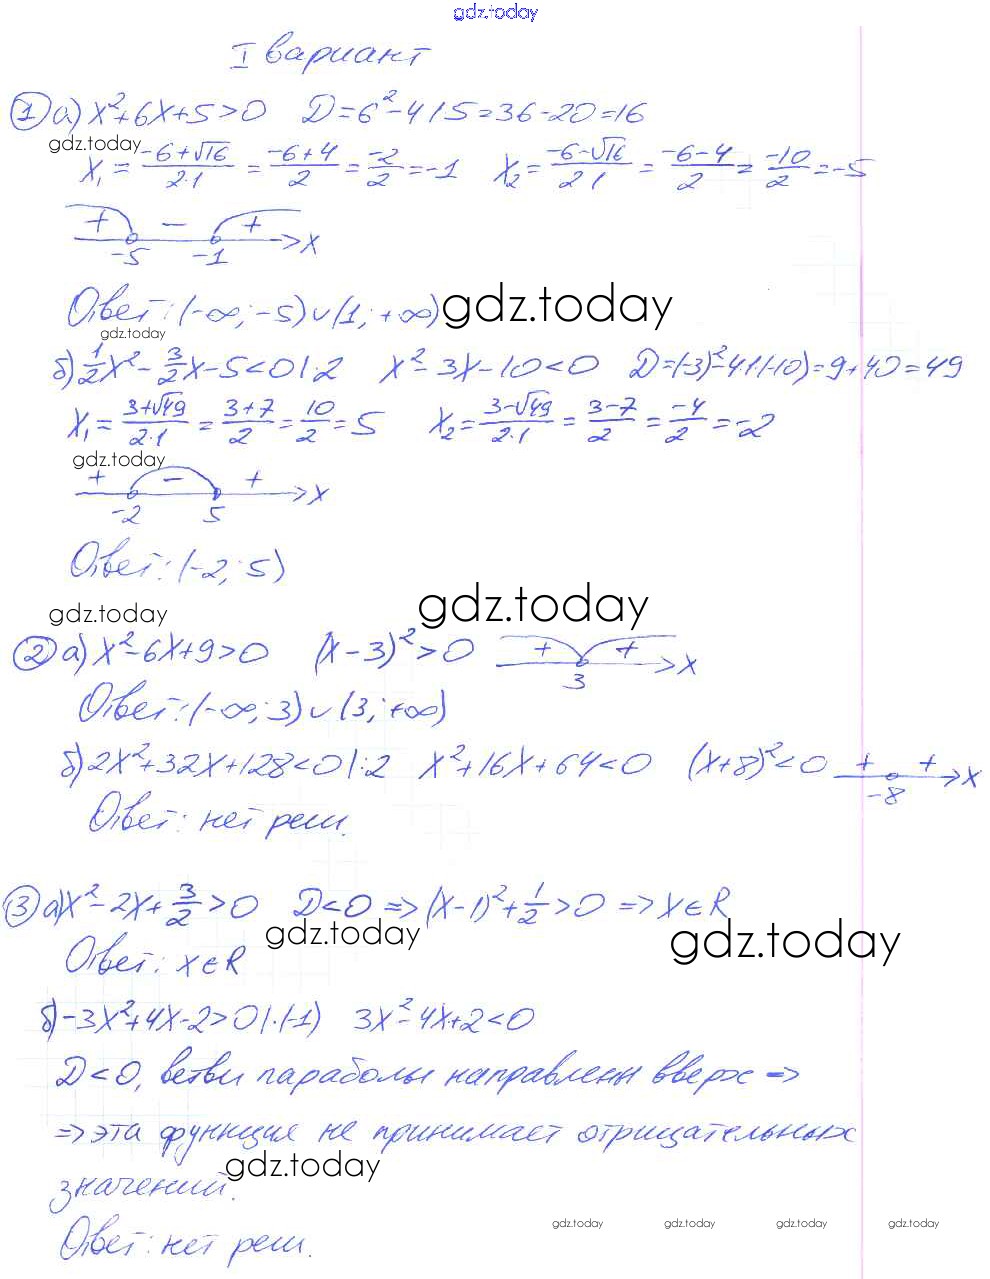 gdz.today
I вариант
① а) x²+6x+5>0 D=6²-4·1·5=36-20=16
gdz.today
x₁ = (-6+√16)/(2·1) = (-6+4)/2 = -2/2 = -1 x₂ = (-6-√16)/(2·1) = (-6-4)/2 = -10/2 = -5
+ - +
-5 -1 x
Ответ: (-∞; -5)∪(1; +∞) gdz.today
gdz.today
б) 1/2x² - 3/2x - 5<0 |·2 x²-3x-10<0 D=(-3)²-4·1·(-10)=9+40=49
x₁ = (3+√49)/(2·1) = (3+7)/2 = 10/2 = 5 x₂ = (3-√49)/(2·1) = (3-7)/2 = -4/2 = -2
gdz.today
+ - +
-2 5 x
Ответ: (-2; 5)
gdz.today gdz.today
② а) x²-6x+9>0 (x-3)²>0 + + 3 x
Ответ: (-∞; 3)∪(3; +∞)
б) 2x²+32x+128<0 |:2 x²+16x+64<0 (x+8)²<0 + + -8 x
Ответ: нет реш.
③ а) x²-2x+3/2>0 D<0 => (x-1)²+1/2>0 => x∈R
gdz.today gdz.today
Ответ: x∈R
б) -3x²+4x-2>0 |·(-1) 3x²-4x+2<0
D<0, ветви параболы направлены вверх =>
=> эта функция не принимает отрицательных
gdz.today
значений.
gdz.today gdz.today gdz.today gdz.today
Ответ: нет реш.